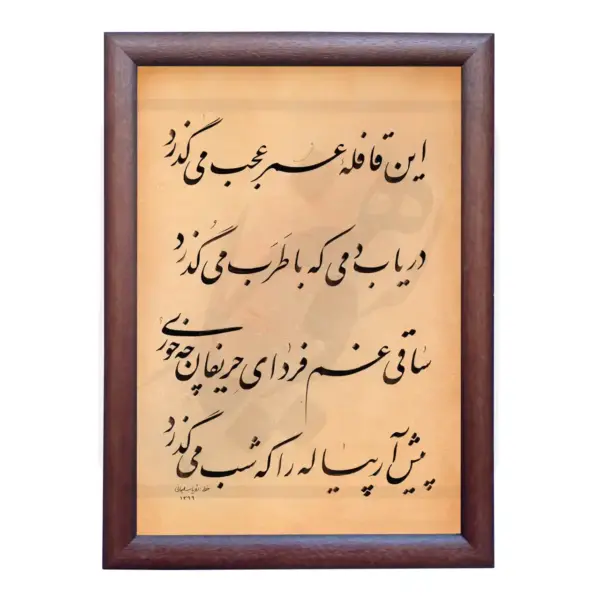 این قافلهٔ عمر عجب می‌گذرد
دریاب دمی که با طَرَب می‌گذرد
ساقی غم فردای حریفان چه خوری
پیش آر پیاله را که شب می‌گذرد
خط
۱۳۶۶